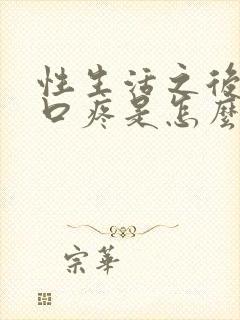 性生活之後
口疼是怎麼
宗華